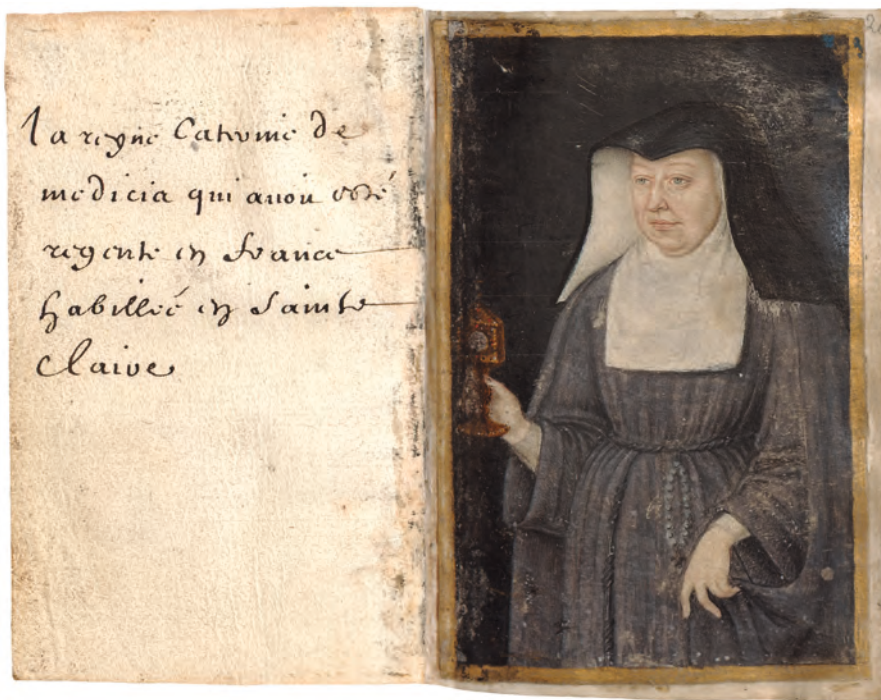 la reyne Caterine de
medicis qui auoit esté
regente en france
habilleé en Sainte
Claire
2